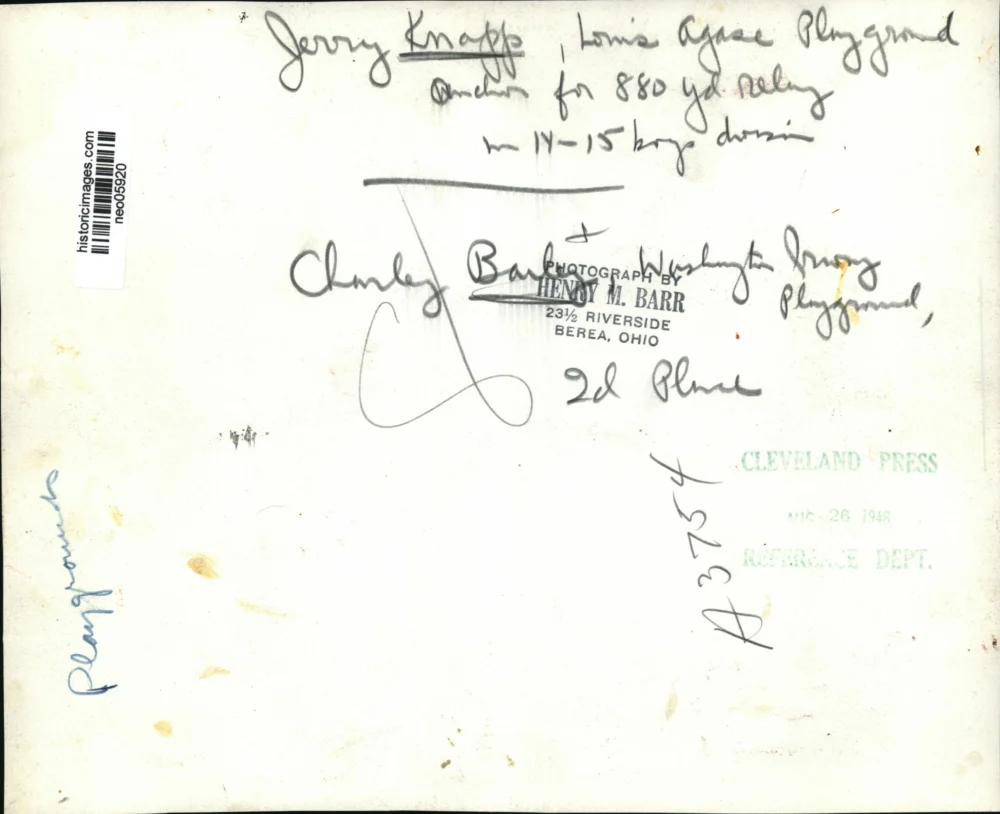 Jerry Knapp, Louis Agase Playground
anchor for 880 yd relay
in 14-15 boys division
Charley Washington Irving
Playground,
2d Place
PHOTOGRAPH BY
HENRY M. BARR
23½ RIVERSIDE
BEREA, OHIO
CLEVELAND PRESS
AUG 26 1948
REFERENCE DEPT.
A3754
Playgrounds
historicimages.com
neo05920